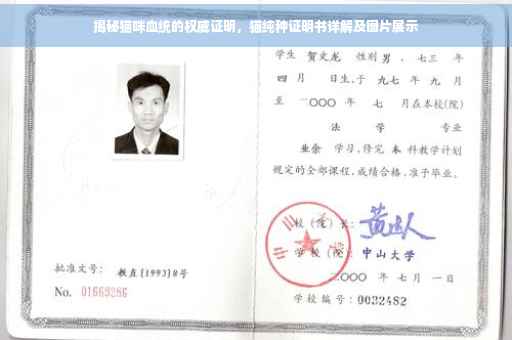 揭秘猫咪血统的权威证明，猫纯种证明书详解及图片展示
学生 贺文龙 性别 男，七三 年
四 月 日生，于 九七 年 九 月
至 二〇〇〇 年 七 月在本校(院)
法 学 专业
业余 学习，修完 本 科教学计划
规定的全部课程，成绩合格，准予毕业。
校 (院) 长：
学 校 (院)： 中山大学
二〇〇〇 年 七 月 一 日
批准文号： 教直[1993]8号
No. 01669286
学校编号：0032482